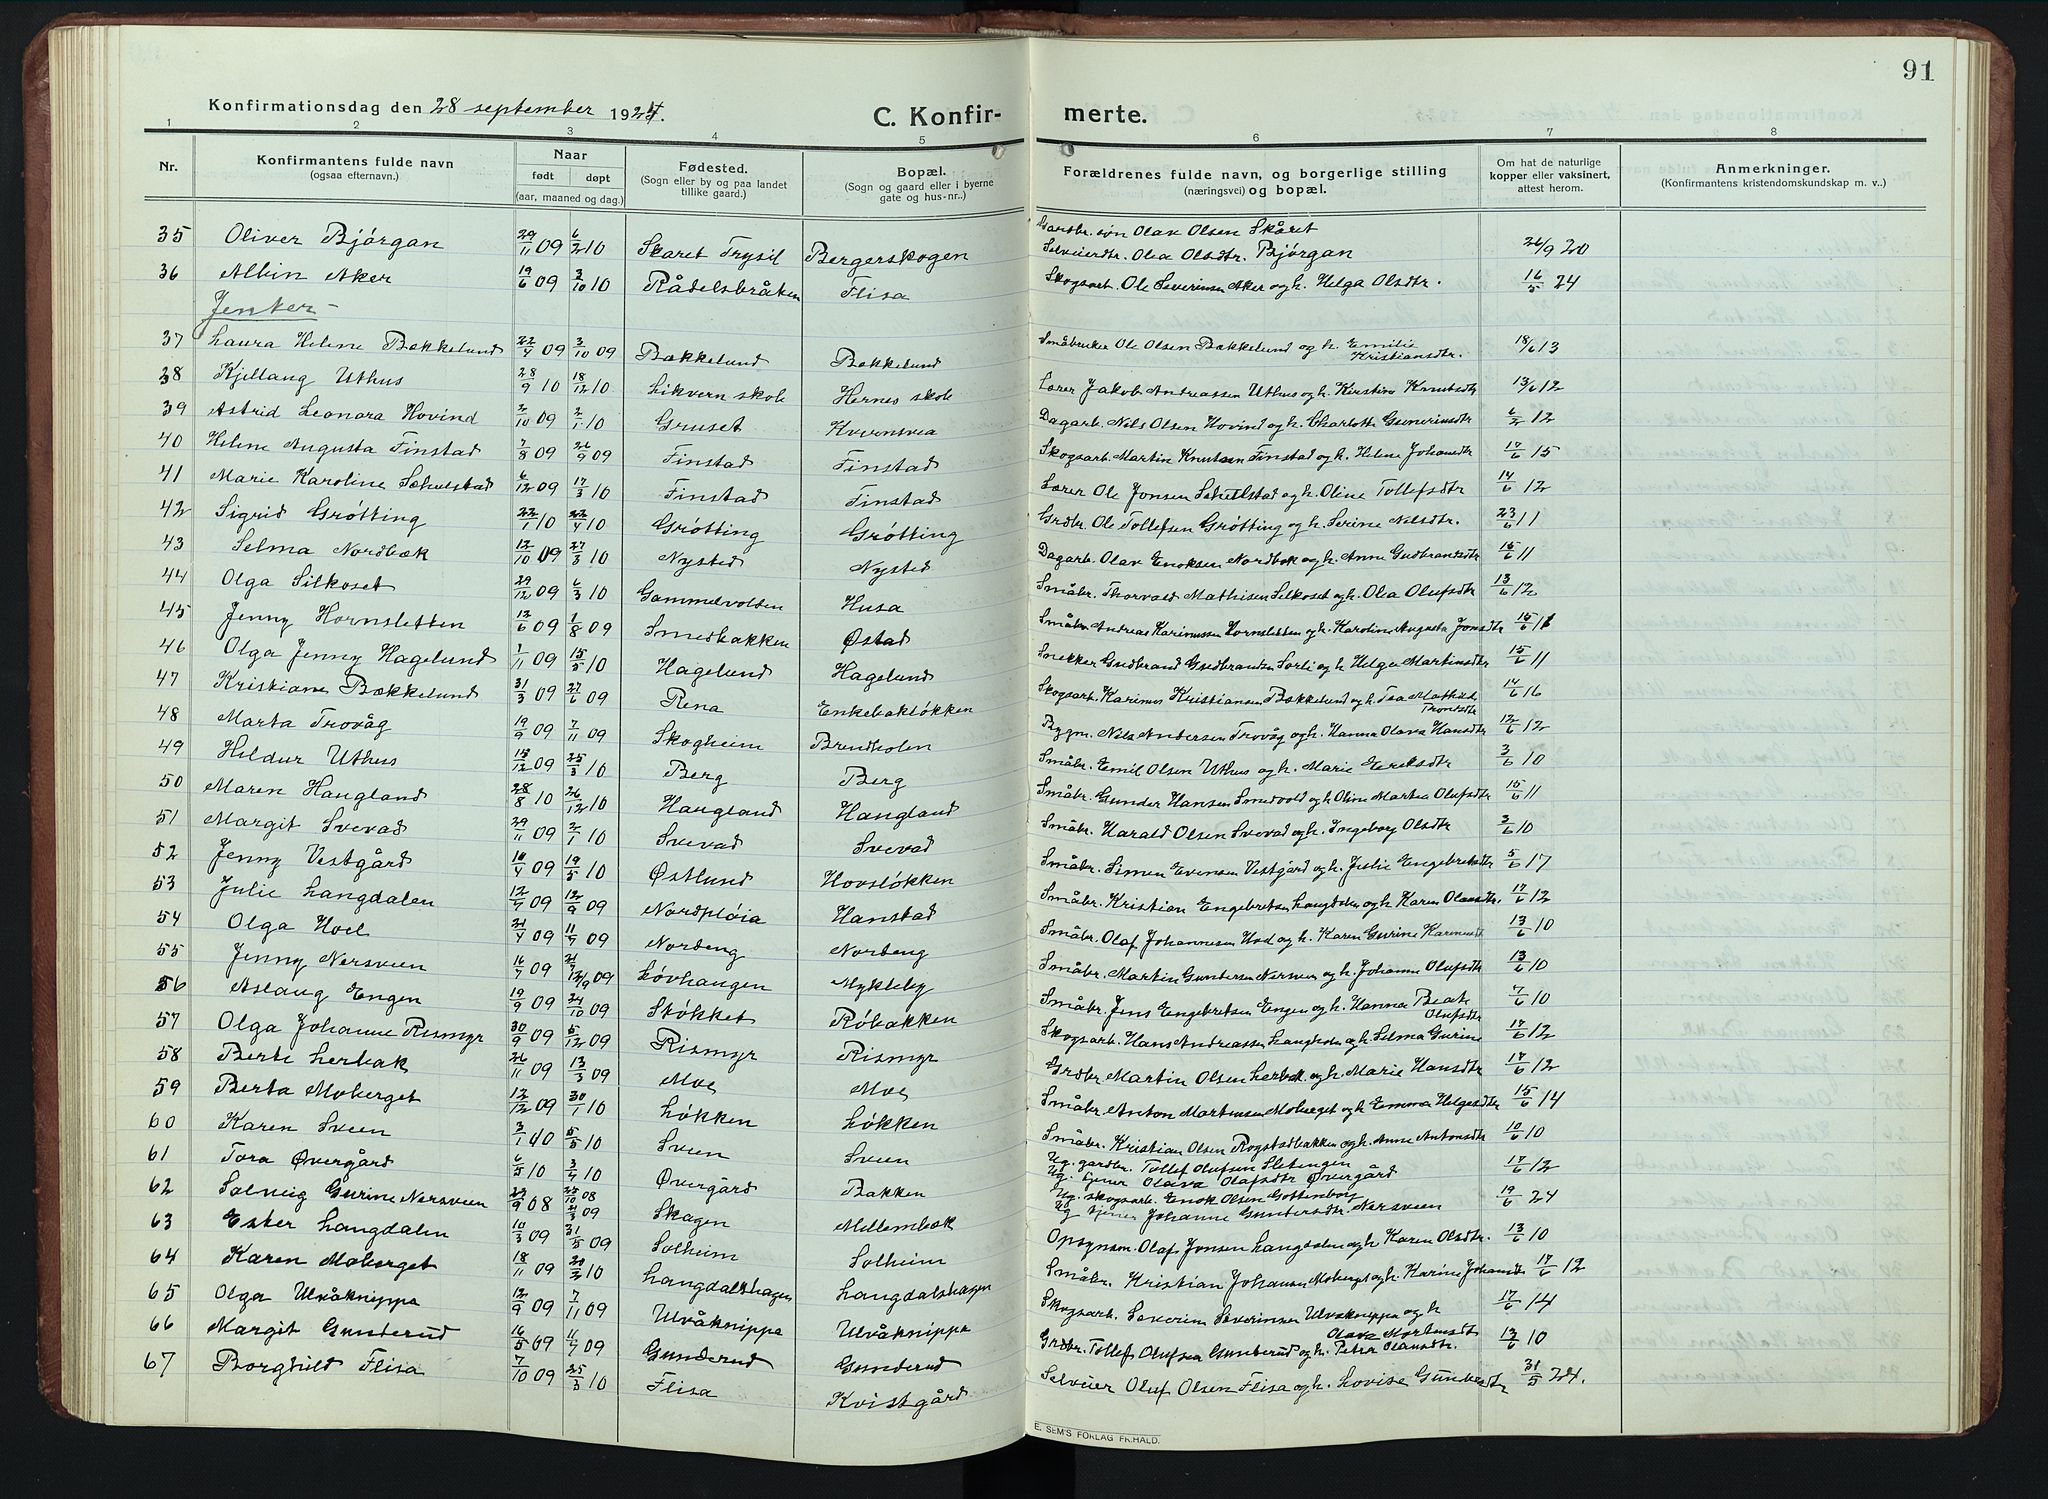 91
Konfirmationsdag den 28 september 1924.
C. Konfir-
merte.
1 2 3 4 5 6 7 8
Nr.
Konfirmantens fulde navn
(ogsaa efternavn.)
Naar
født døpt
(aar, maaned og dag.)
Fødested.
(Sogn eller by og paa landet
tillike gaard.)
Bopæl.
(Sogn og gaard eller i byerne
gate og hus-nr..)
Forældrenes fulde navn, og borgerlige stilling
(næringsvei) og bopæl.
Om hat de naturlige
kopper eller vaksinert,
attest herom.
Anmerkninger.
(Konfirmantens kristendomskundskap m. v..)
35 Oliver Bjørgan 29/11 09 6/2 10 Skaret Trysil Bergerskogen Gardbr. søn Olav Olsen Skåret
Selveierdtr. Olea Olsdtr. Bjørgan 26/9 20
36 Albin Aker 19/6 09 2/10 10 Rådelsbråten Flisa Skogsarb. Ole Severinsen Aker og h. Helga Olsdtr. 16/5 24
Jenter –
37 Laura Helene Bækkelund 22/4 09 3/10 09 Bækkelund Bækkelund Småbruker Ole Olsen Bækkelund og h. Emilie
Kristiansdtr. 18/6 13
38 Kjellaug Uthus 28/9 10 18/12 10 Likvern skole Hernes skole Lærer Jakob Andreassen Uthus og h. Kirstine Knutsdtr 13/6 12
39 Astrid Leonora Hovind 2/10 09 2/1 10 Gruset Kvernsvea Dagarb. Nils Olsen Hovind og h. Charlotte Gunerinsdtr 6/2 12
40 Helene Augusta Finstad 7/8 09 26/9 09 Finstad Finstad Skogsarb. Martin Knutsen Finstad og h. Helene Johansdtr 17/6 15
41 Marie Karoline Sæhelstad 6/12 09 17/3 10 Finstad Finstad Lærer Ole Jonsen Sæhellstad og h. Oline Tollefsdtr 14/6 12
42 Sigrid Grøtting 22/1 10 22/4 10 Grøtting Grøtting Grdbr. Ole Tollefsen Grøtting og h. Serine Nilsdtr. 23/6 11
43 Selma Nordbæk 12/10 09 27/3 10 Nysted Nysted Dagarb. Olav Enoksen Nordbæk og h. Anne Gudbrandsdtr 15/6 11
44 Olga Silkoset 29/12 09 6/3 10 Gammelvolden Husa Småbr. Thorvald Mathisen Silkoset og h. Olea Olufsdtr 13/6 12
45 Jenny Hornsletten 12/6 09 1/8 09 Smedbakken Østad Småbr. Andreas Karinussen Hornsletten og h. Karoline Augusta Jonsdtr 15/6 11
46 Olga Jenny Hagelund 1/11 09 15/5 10 Hagelund Hagelund Snekker Gudbrand Gudbrandsen Sorli og h. Helga Martinsdtr 15/6 11
47 Kristiane Bækkelund 31/3 09 27/6 09 Rena Enkebakløkken Skogsarb. Karinus Kristiansen Bækkelund og h. Tea Mathilde
Trondsdtr 14/6 16
48 Marta Trovåg 19/9 09 7/11 09 Skogheim Brendholen Bygm. Nils Andersen Trovåg og h. Hanna Olava Hansdtr 12/6 12
49 Hildur Uthus 15/12 09 25/3 10 Berg Berg Småbr. Emil Olsen Uthus og h. Marie Eriksdtr 3/6 10
50 Maren Haugland 28/8 10 26/12 10 Haugland Haugland Småbr. Gunder Hansen Smedvold og h. Oline Martea Olufsdtr 15/6 11
51 Margit Svevad 29/11 09 2/1 10 Svevad Svevad Småbr. Harald Olsen Svevad og h. Ingeborg Olsdtr 3/6 10
52 Jenny Vestgård 10/4 09 19/5 10 Østlund Hovsløkken Småbr. Simen Evensen Vestgård og h. Julie Engebretsdtr 5/6 17
53 Julie Langdalen 12/7 09 12/9 09 Nordpløia Hanstad Småbr. Kristian Engebretsen Langdalen og h. Karen Olausdtr. 17/6 12
54 Olga Hoel 21/4 09 11/7 09 Nordeng Nordeng Småbr. Olaf Johannesen Hoel og h. Karen Gurine Karinusdt 13/6 10
55 Jenny Nersveen 16/7 09 21/7 12/9 09 Løvhaugen Mykleby Småbr. Martin Gundersen Nersveen og h. Johanne Olufsdtr 13/6 10
56 Aslaug Engen 19/9 09 24/10 09 Støkket Røbakken Småbr. Jens Engebretsen Engen og h. Hanna Beate
Olufsdtr 7/6 10
57 Olga Johanne Rismyr 30/9 09 5/12 09 Rismyr Rismyr Skogsarb. Hans Andreassen og h. Selma Gurine 17/6 12
58 Berte Lerbak 26/11 09 13/3 09 Moe Moe Grdbr Martin Olsen Lerbak og h. Marie Hansdtr 17/6 12
59 Berta Moberget 12/12 09 30/1 10 Løkken Løkken Småbr. Anton Martinsen Moberget og h. Emma Helgesdtr 15/6 14
60 Karen Sveen 3/1 10 5/5 10 Sveen Sveen Småbr. Kristian Olsen Rogstadbakken og h. Anne Antonsdtr 10/6 10
61 Tora Øvergård 6/5 10 3/4 10 Øvergård Bakken Ug. gardbr. Tollef Olufsen Sletengen
Ug. tjener Olava Olafsdtr Øvergård 17/6 12
62 Solveig Gurine Nersveen 22/9 08 25/10 08 21/3 09 Skagen Mellembæk Ug. skogsarb. Enok Olsen Gottenborg
Ug tjener Johanne Gundersdtr. Nersveen 19/6 24
63 Ester Langdalen 10/3 09 31/5 09 Solheim Solheim Opsynsm. Olaf Jonsen Langdalen og h. Karen Olsdtr. 13/6 10
64 Karen Moberget 18/11 09 20/2 10 Langdalshagen Langdalshagen Småbr. Kristian Johansen Moberget og h. Karine Johansdt 17/6 12
65 Olga Ulvåknippa 12/9 09 7/11 09 Ulvåknippa Ulvåknippa Skogsarb. Severin Severinsen Ulvåknippa og h
Olava Mortensdt 17/6 14
66 Margit Gunderud 16/5 09 11/7 09 Gunderud Gunderud Grdbr. Tollef Olufsen Gunderud og h. Petra Olausdtr. 13/6 10
67 Borghild Flisa 7/10 09 25/3 10 Flisa Kvistgård Selveier Oluf Olsen Flisa og h. Lovise Gundersdtr 31/5 24.
E. SEM'S FORLAG FR.HALD.